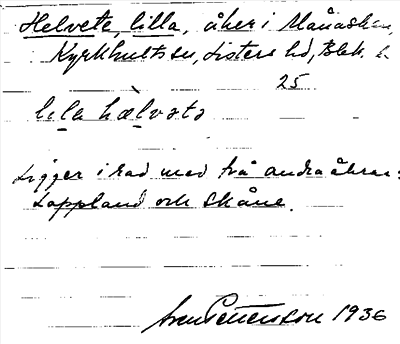 Helvete, lilla, åker i Månasken,
Kyrkhults sn, Listers hd, Blek. l.
25
lila hælvətə
Ligger i rad med två andra åkrar:
Lappland och Skåne.
Sven Pettersson 1936